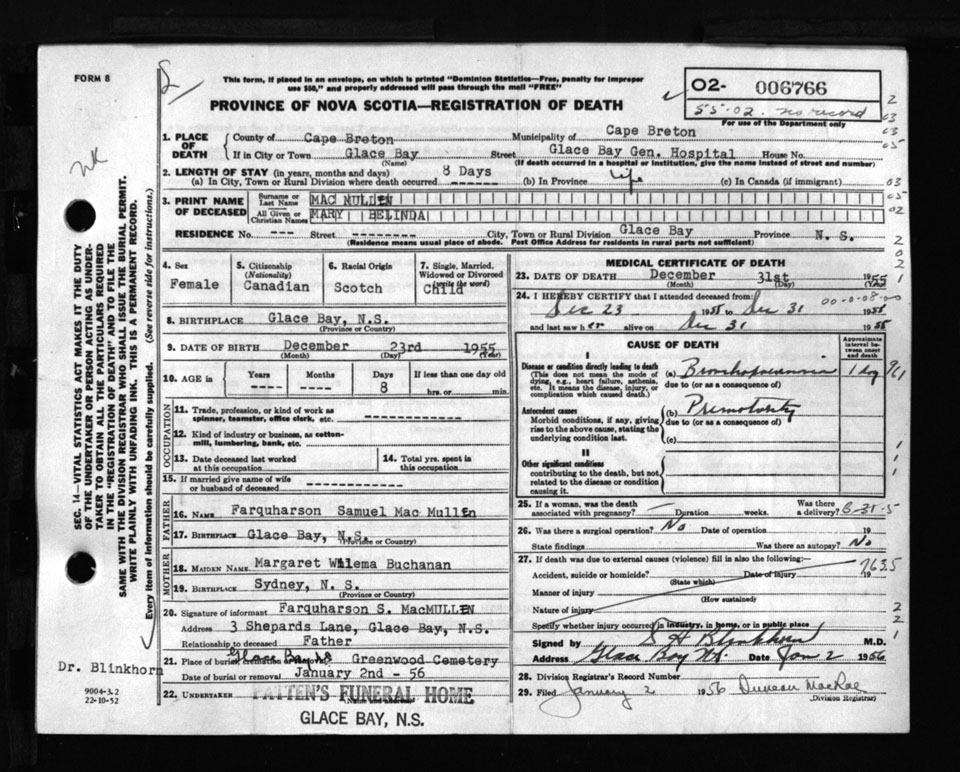 FORM 8
This form, if placed in an envelope, on which is printed "Dominion Statistics—Free, penalty for improper
use $50," and properly addressed will pass through the mail "FREE"
PROVINCE OF NOVA SCOTIA—REGISTRATION OF DEATH
02- 006766
55-02. no record
For use of the Department only
1. PLACE OF DEATH
County of Cape Breton Municipality of Cape Breton
If in City or Town Glace Bay Street Glace Bay Gen. Hospital House No.
(Name) (If death occurred in a hospital or institution, give the name instead of street and number)
2. LENGTH OF STAY (in years, months and days) 8 Days
(a) In City, Town or Rural Division where death occurred ------ (b) In Province Life (c) In Canada (if immigrant)
3. PRINT NAME OF DECEASED
Surname or Last Name MAC MULLEN
All Given or Christian Names MARY BELINDA
RESIDENCE No. --- Street -------- City, Town or Rural Division Glace Bay Province N. S.
(Residence means usual place of abode. Post Office Address for residents in rural parts not sufficient)
4. Sex Female
5. Citizenship (Nationality) Canadian
6. Racial Origin Scotch
7. Single, Married, Widowed or Divorced (write the word) Child
8. BIRTHPLACE Glace Bay, N.S.
(Province or Country)
9. DATE OF BIRTH December 23rd 1955
(Month) (Day) (Year)
10. AGE in Years ---- Months ---- Days 8 If less than one day old hrs. or min.
OCCUPATION
11. Trade, profession, or kind of work as spinner, teamster, office clerk, etc. ------------
12. Kind of industry or business, as cotton-mill, lumbering, bank, etc.
13. Date deceased last worked at this occupation
14. Total yrs. spent in this occupation
15. If married give name of wife or husband of deceased ------------
FATHER
16. NAME Farquharson Samuel Mac Mullen
17. BIRTHPLACE Glace Bay, N.S.
(Province or Country)
MOTHER
18. MAIDEN NAME Margaret Wilema Buchanan
19. BIRTHPLACE Sydney, N. S.
(Province or Country)
20. Signature of informant Farquharson S. MacMULLEN
Address 3 Shepards Lane, Glace Bay, N.S.
Relationship to deceased Father
21. Place of burial, cremation or removal Glace Bay NS Greenwood Cemetery
Date of burial or removal January 2nd - 56
22. UNDERTAKER PATTEN'S FUNERAL HOME
(Name and address)
GLACE BAY, N.S.
MEDICAL CERTIFICATE OF DEATH
23. DATE OF DEATH December 31st 1955
(Month) (Day) (Year)
24. I HEREBY CERTIFY that I attended deceased from:
Dec 23 1955 to Dec 31 1955
00-0-08-00
and last saw her alive on Dec 31 1955
CAUSE OF DEATH
Approximate interval between onset and death
I
Disease or condition directly leading to death
(This does not mean the mode of dying, e.g., heart failure, asthenia, etc. It means the disease, injury, or complication which caused death.)
(a) Bronchopneumonia 1 day
due to (or as a consequence of)
Antecedent causes
Morbid conditions, if any, giving rise to the above cause, stating the underlying condition last.
(b) Prematurity
due to (or as a consequence of)
(c)
II
Other significant conditions
contributing to the death, but not related to the disease or condition causing it.
25. If a woman, was the death associated with pregnancy? Duration weeks. Was there a delivery?
26. Was there a surgical operation? No Date of operation 19
State findings Was there an autopsy? No
27. If death was due to external causes (violence) fill in also the following:
7635
Accident, suicide or homicide? Date of injury 19
(State which)
Manner of injury
(How sustained)
Nature of injury
Specify whether injury occurred in industry, in home, or in public place
Signed by S H Blinkhorn M.D.
Address Glace Bay NS. Date Jan 2 1956
28. Division Registrar's Record Number
29. Filed January 2 1956 Duncan MacRae
(Division Registrar)
SEC. 14—VITAL STATISTICS ACT MAKES IT THE DUTY
OF THE UNDERTAKER OR PERSON ACTING AS UNDER-
TAKER TO OBTAIN ALL THE PARTICULARS REQUIRED
IN THE "REGISTRATION OF DEATH" AND TO FILE THE
SAME WITH THE DIVISION REGISTRAR WHO SHALL ISSUE THE BURIAL PERMIT.
WRITE PLAINLY WITH UNFADING INK. THIS IS A PERMANENT RECORD.
Every item of information should be carefully supplied. (See reverse side for instructions.)
Dr. Blinkhorn
9004-3.2
22-10-52